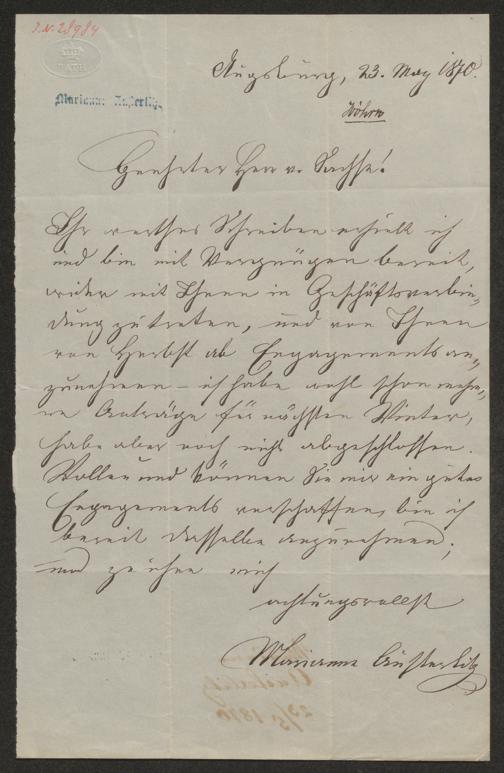 J. N. 28984
BATH
Marianne Austerlitz
Augsburg, 23. May 1870.
Geehrter Herr v. Sachse!
Ihr werthes Schreiben erhielt ich
und bin mit Vergnügen bereit,
wider mit Ihnen in Geschäftsverbin-
dung zu treten, und von Ihnen
von Herbst ab Engagements an-
zunehmen – ich habe wohl schon mehre-
re Anträge für nächsten Winter,
habe aber noch nicht abgeschlossen.
Wollen und können Sie mir ein gutes
Engagements verschaffen, bin ich
bereit dasselbe anzunehmen,
und zeichne mich
achtungsvollst
Marianne Austerlitz